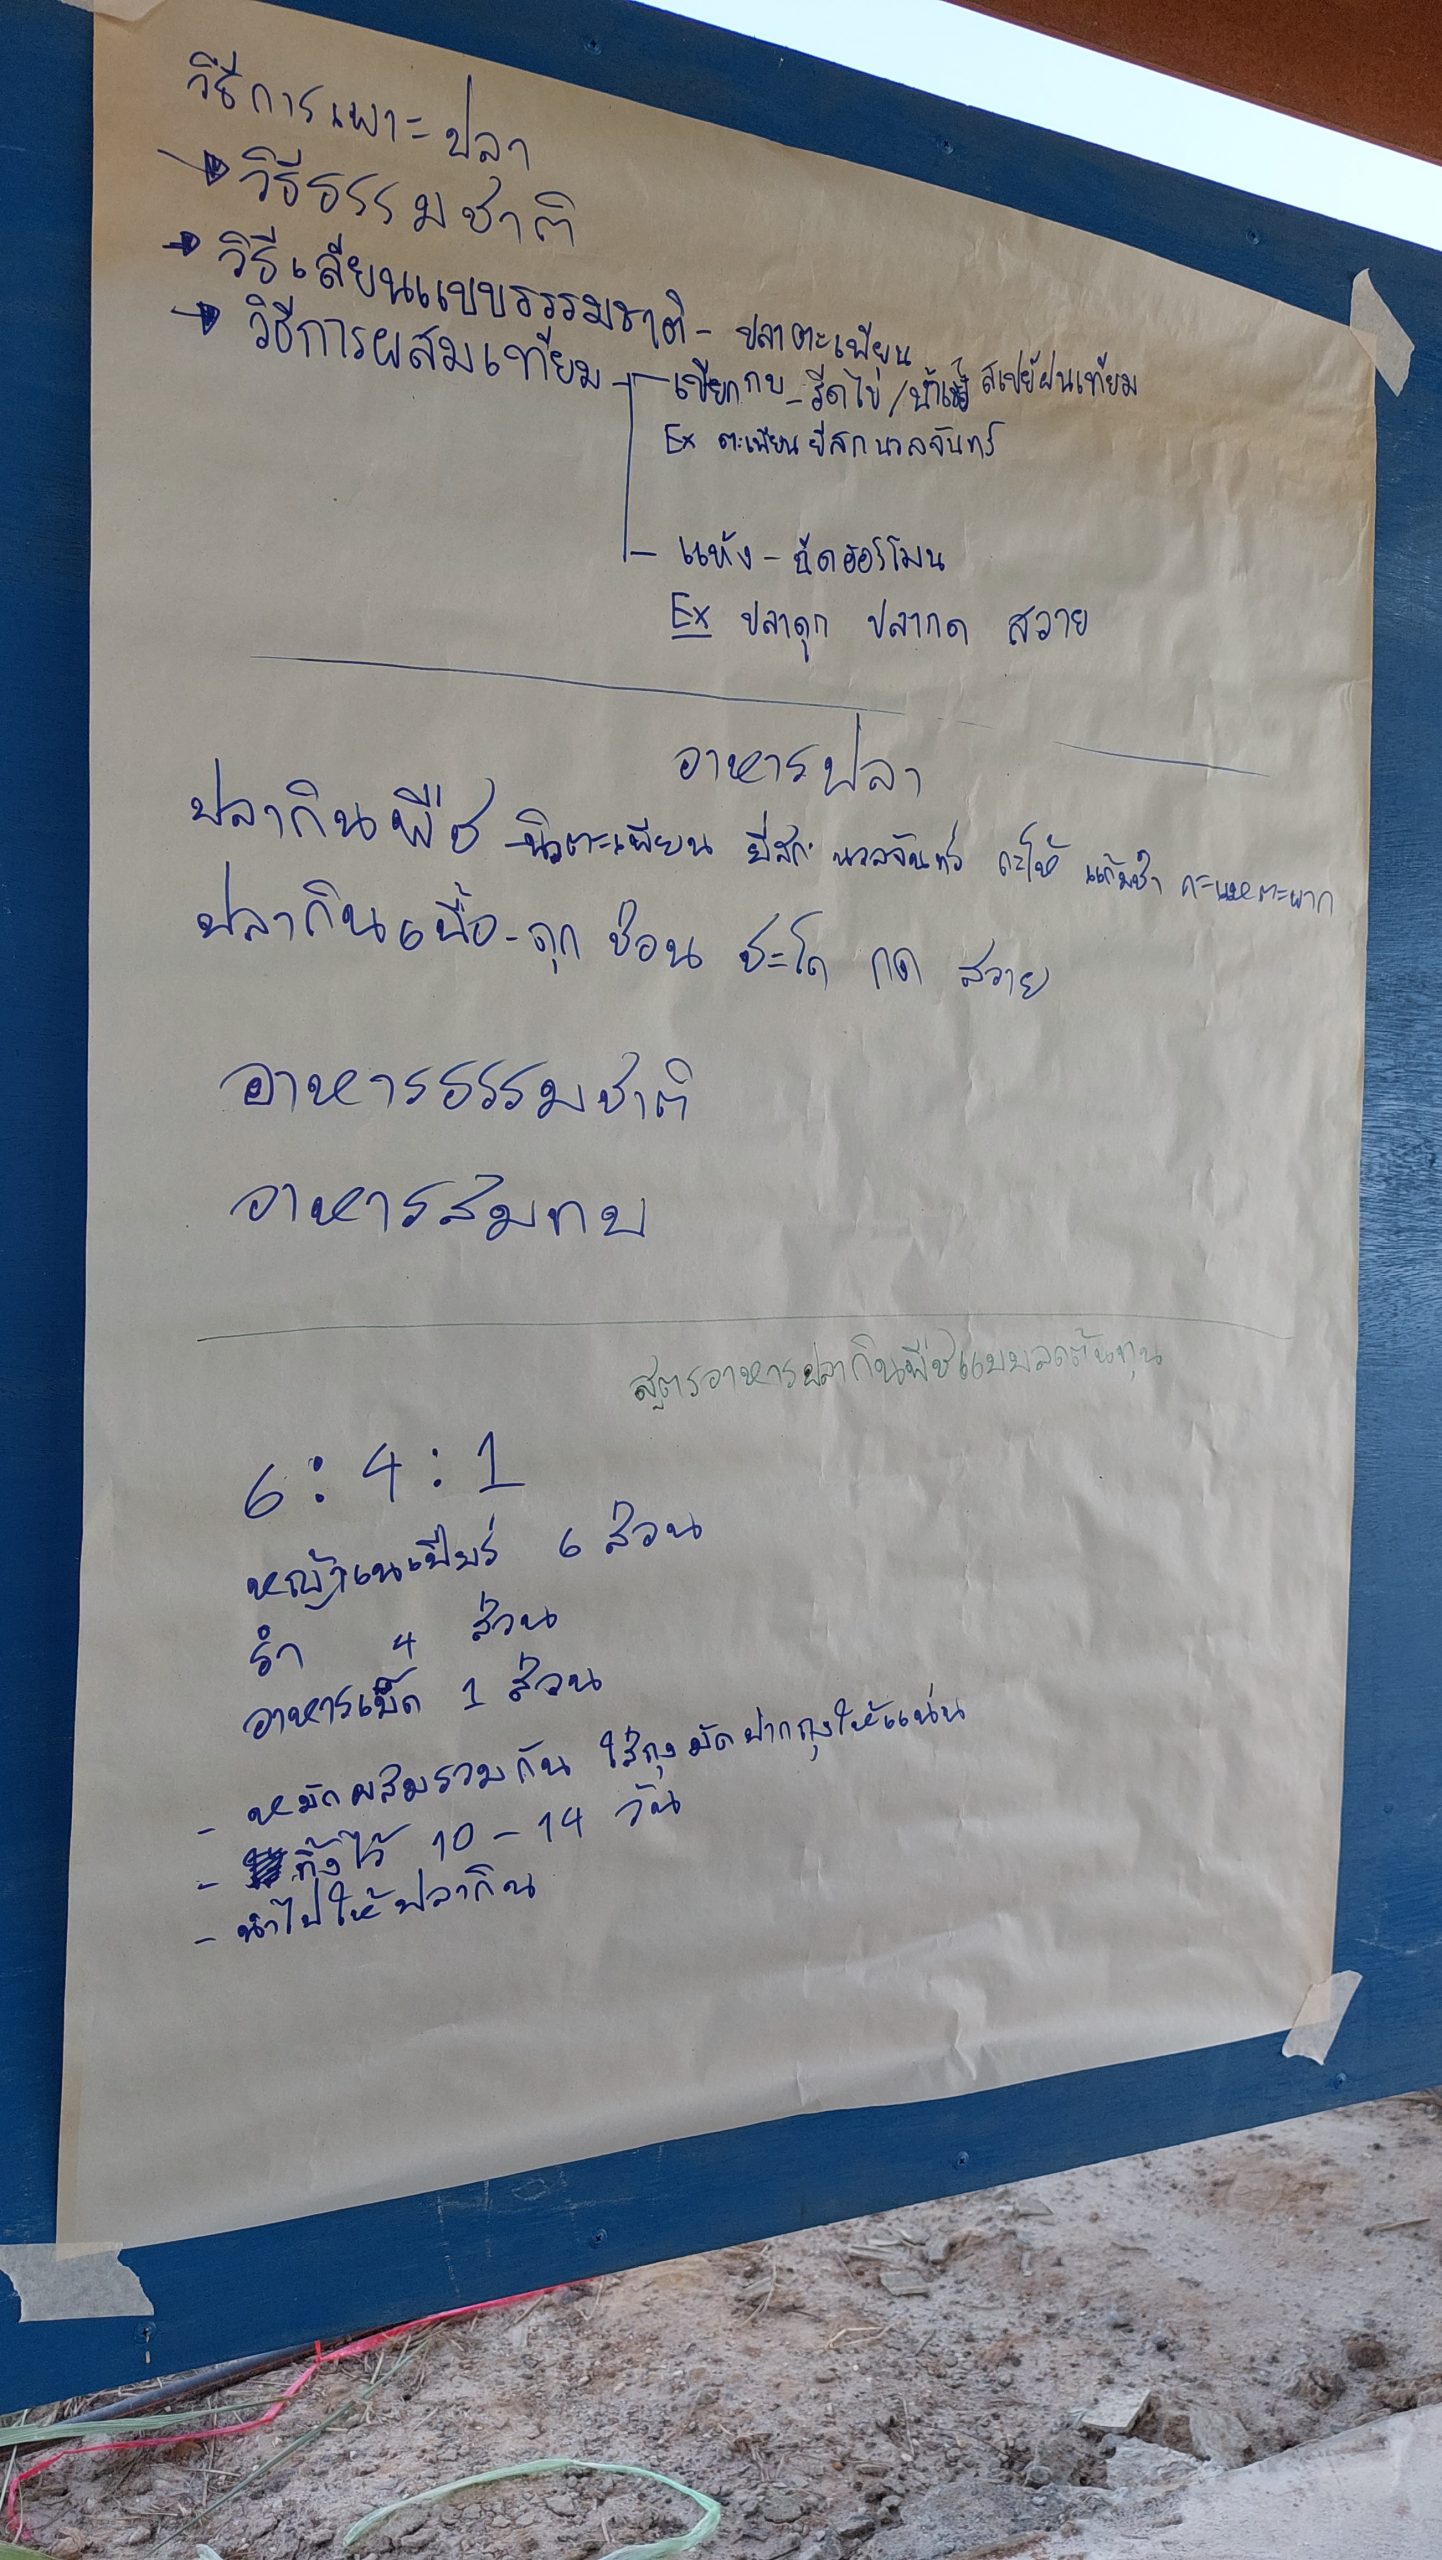 วิธีการเพาะปลา
วิธีธรรมชาติ
วิธีเลียนแบบธรรมชาติ - ปลาตะเพียน
วิธีการผสมเทียม
- เปียก - รีดไข่/น้ำเชื้อ สเปย์ฝนเทียม
Ex ตะเพียน ยี่สก นวลจันทร์
- แห้ง - ฉีดฮอร์โมน
Ex ปลาดุก ปลากด สวาย
อาหารปลา
ปลากินพืช - นิล ตะเพียน ยี่สก นวลจันทร์ กะโห้ แก้มช้ำ
ปลากินเนื้อ - ดุก ช่อน ชะโด กด สวาย
อาหารธรรมชาติ
อาหารสมทบ
สูตรอาหารปลากินพืชแบบลดต้นทุน
6 : 4 : 1
หญ้าเนเปียร์ 6 ส่วน
รำ 4 ส่วน
อาหารเม็ด 1 ส่วน
- หมักผสมรวมกัน ใส่ถุงมัดปากถุงให้แน่น
- ทิ้งไว้ 10 - 14 วัน
- นำไปให้ปลากิน